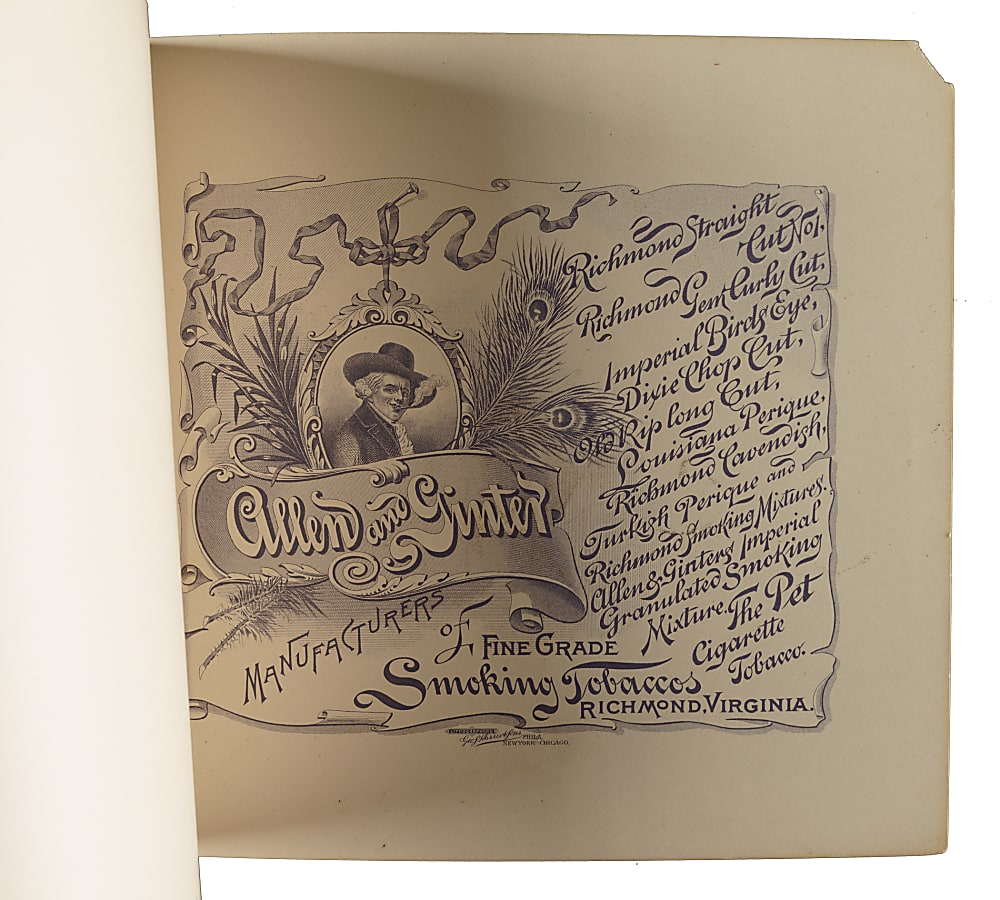 Allen and Ginter
Manufacturers
of Fine Grade
Smoking Tobaccos
Richmond, Virginia.
Richmond Straight
Cut No 1,
Richmond Gem Curly Cut,
Imperial Birds Eye,
Dixie Chop Cut,
Old Rip long Cut,
Louisiana Perique,
Richmond Cavendish,
Turkish Perique and
Richmond Smoking Mixtures.
Allen & Ginters Imperial
Granulated Smoking
Mixture. The Pet
Cigarette
Tobacco.
Lithographers
Geo. S. Harris & Sons PHILA.
NEW YORK-CHICAGO.